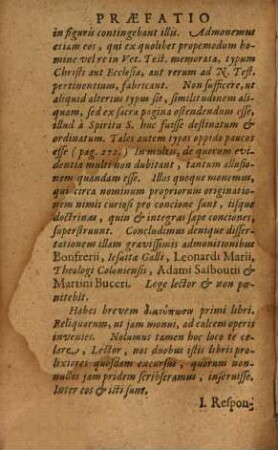 PRÆFATIO
in figuris contingebant illis. Admonemus
etiam eos, qui ex quolibet propemodum ho-
mine vel re in Vet. Test. memorata, typum
Christi aut Ecclesiæ, aut rerum ad N. Test.
pertinentium, fabricant. Non sufficere, ut
aliquid alterius typus sit, similitudinem ali-
quam, sed ex sacra pagina ostendendum esse,
illud à Spiritu S. huc fuisse destinatum & or-
dinatum. Tales autem typos oppido paucos
esse (pag. 222.) In multis, de quorum evi-
dentia multi non dubitant, tantum allusio-
nem quandam esse. Illos quoque monemus,
qui circa nominum propriorum originatio-
nem nimis curiosi pro concione sunt, iisque
doctrinas, quin & integras sæpe conciones,
superstruunt. Concludimus denique disser-
tationem illam gravissimis admonitionibus
Bonfrerii, Iesuitæ Galli, Leonardi Marii,
Theologi Coloniensis, Adami Sasboutii &
Martini Buceri. Lege lector & non pœ-
nitebit.
Habes brevem διατύπωσιν primi libri.
Reliquorum, ut jam monui, ad calcem operis
invenies. Nolumus tamen hoc loco te ce-
lare, Lector, nos duobus istis libris pro-
lixiores quosdam excursus, quorum non-
nullos jam pridem scribseramus, inseruisse.
Inter eos & isti sunt.
I. Respon-